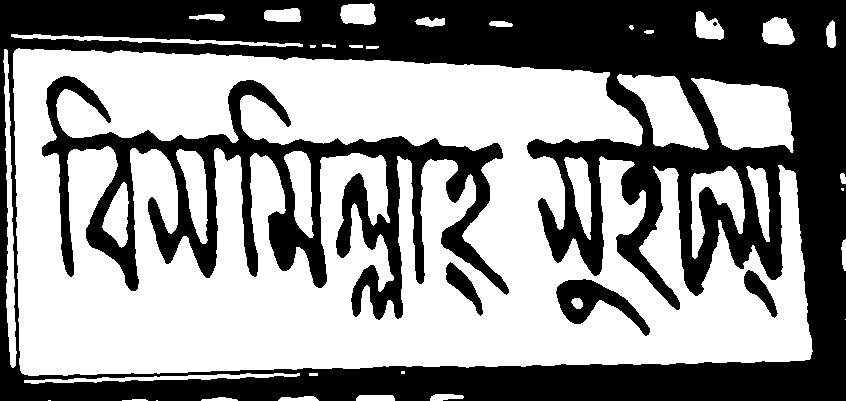 বিসমিল্লাহ্ সুইটস্